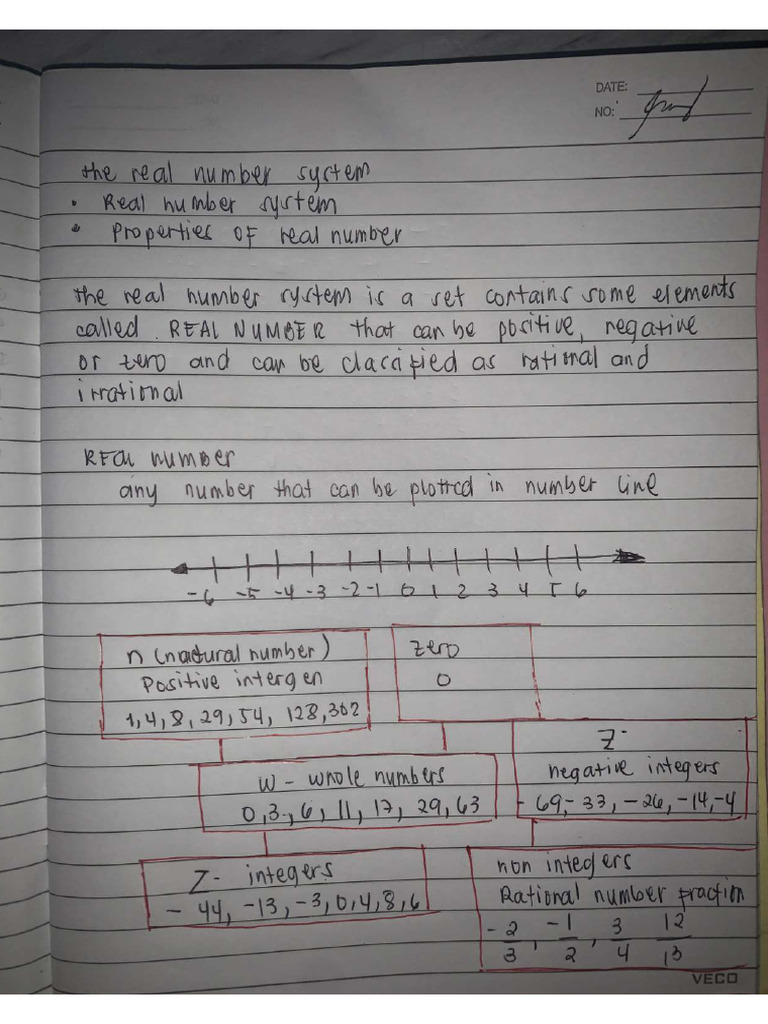 DATE:
NO:
the real number system
• Real number system
• Properties of real number
the real number system is a set contains some elements
called. REAL NUMBER that can be positive, negative
or zero and can be classified as rational and
irrational
REAL number
any number that can be plotted in number line
-6 -5 -4 -3 -2 -1 0 1 2 3 4 5 6
n (natural number)
Positive intergen
1,4,8,29,54, 128,302
zero
0
Z-
negative integers
- 69,- 33, - 26, -14,-4
W - whole numbers
0,3,6, 11, 17, 29, 63
Z- integers
- 44, -13, -3, 0, 4, 8, 6
non integers
Rational number fraction
-2/3, -1/2, 3/4 12/13
VECO